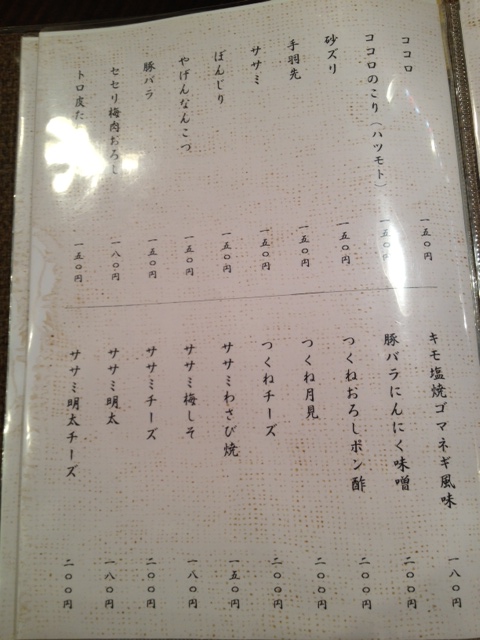 ココロ 一五〇円
ココロのこり(ハツモト) 一五〇円
砂ズリ 一五〇円
手羽先 一五〇円
ササミ 一五〇円
ぼんじり 一五〇円
やげんなんこつ 一五〇円
豚バラ 一五〇円
セセリ梅肉おろし 一八〇円
トロ皮た 一五〇円
キモ塩焼ゴマネギ風味 一八〇円
豚バラにんにく味噌 二〇〇円
つくねおろしポン酢 二〇〇円
つくね月見 二〇〇円
つくねチーズ 二〇〇円
ササミわさび焼 一五〇円
ササミ梅しそ 一八〇円
ササミチーズ 二〇〇円
ササミ明太 一八〇円
ササミ明太チーズ 二〇〇円